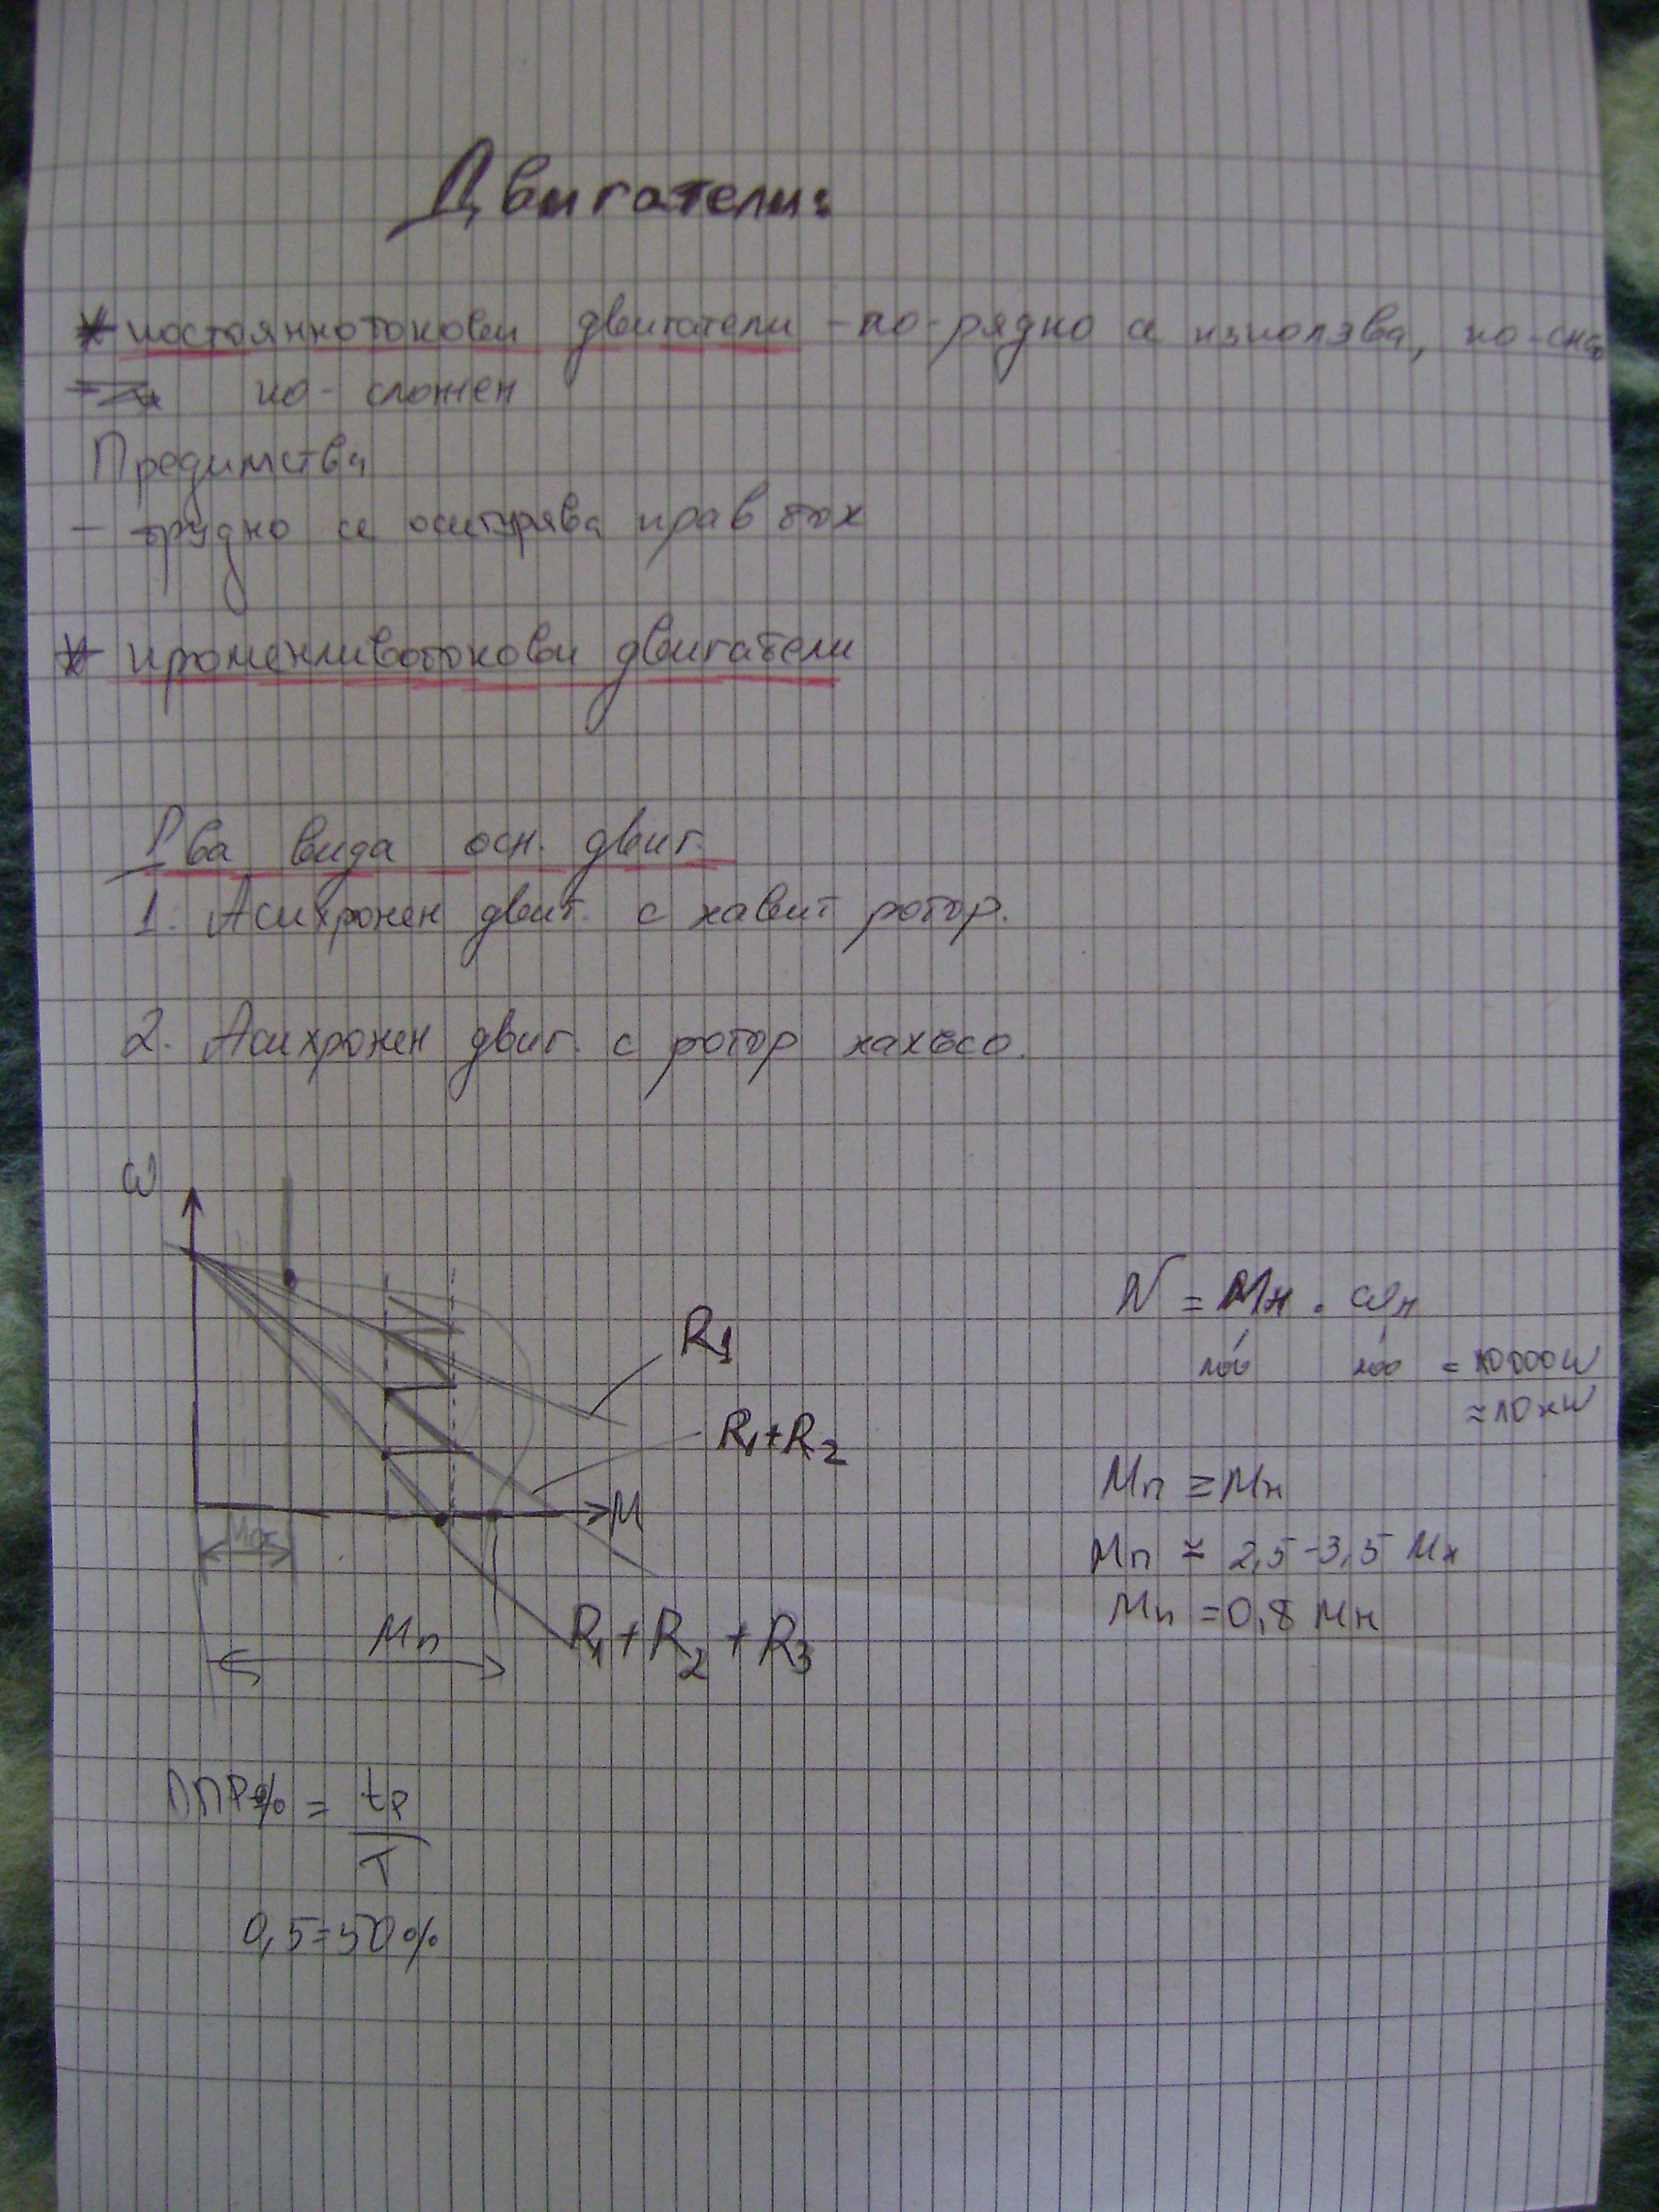 Двигатели:
* постояннотокови двигатели - по-рядко се използва, по-
по-сложен
Предимства
- трудно се осигурява прав ток
* променливотокови двигатели
Два вида осн. двиг.
1. Асихронен двиг. с навит ротор.
2. Асихронен двиг. с ротор накъсо.
ω
R1
R1+R2
M
Mп
R1+R2+R3
N = Mн . ωн
100 100 = 10000W
≈10кW
Mп ≥ Mн
Mп ≈ 2,5-3,5 Mн
Mп = 0,8 Mн
ППР% = tp
T
0,5=50%